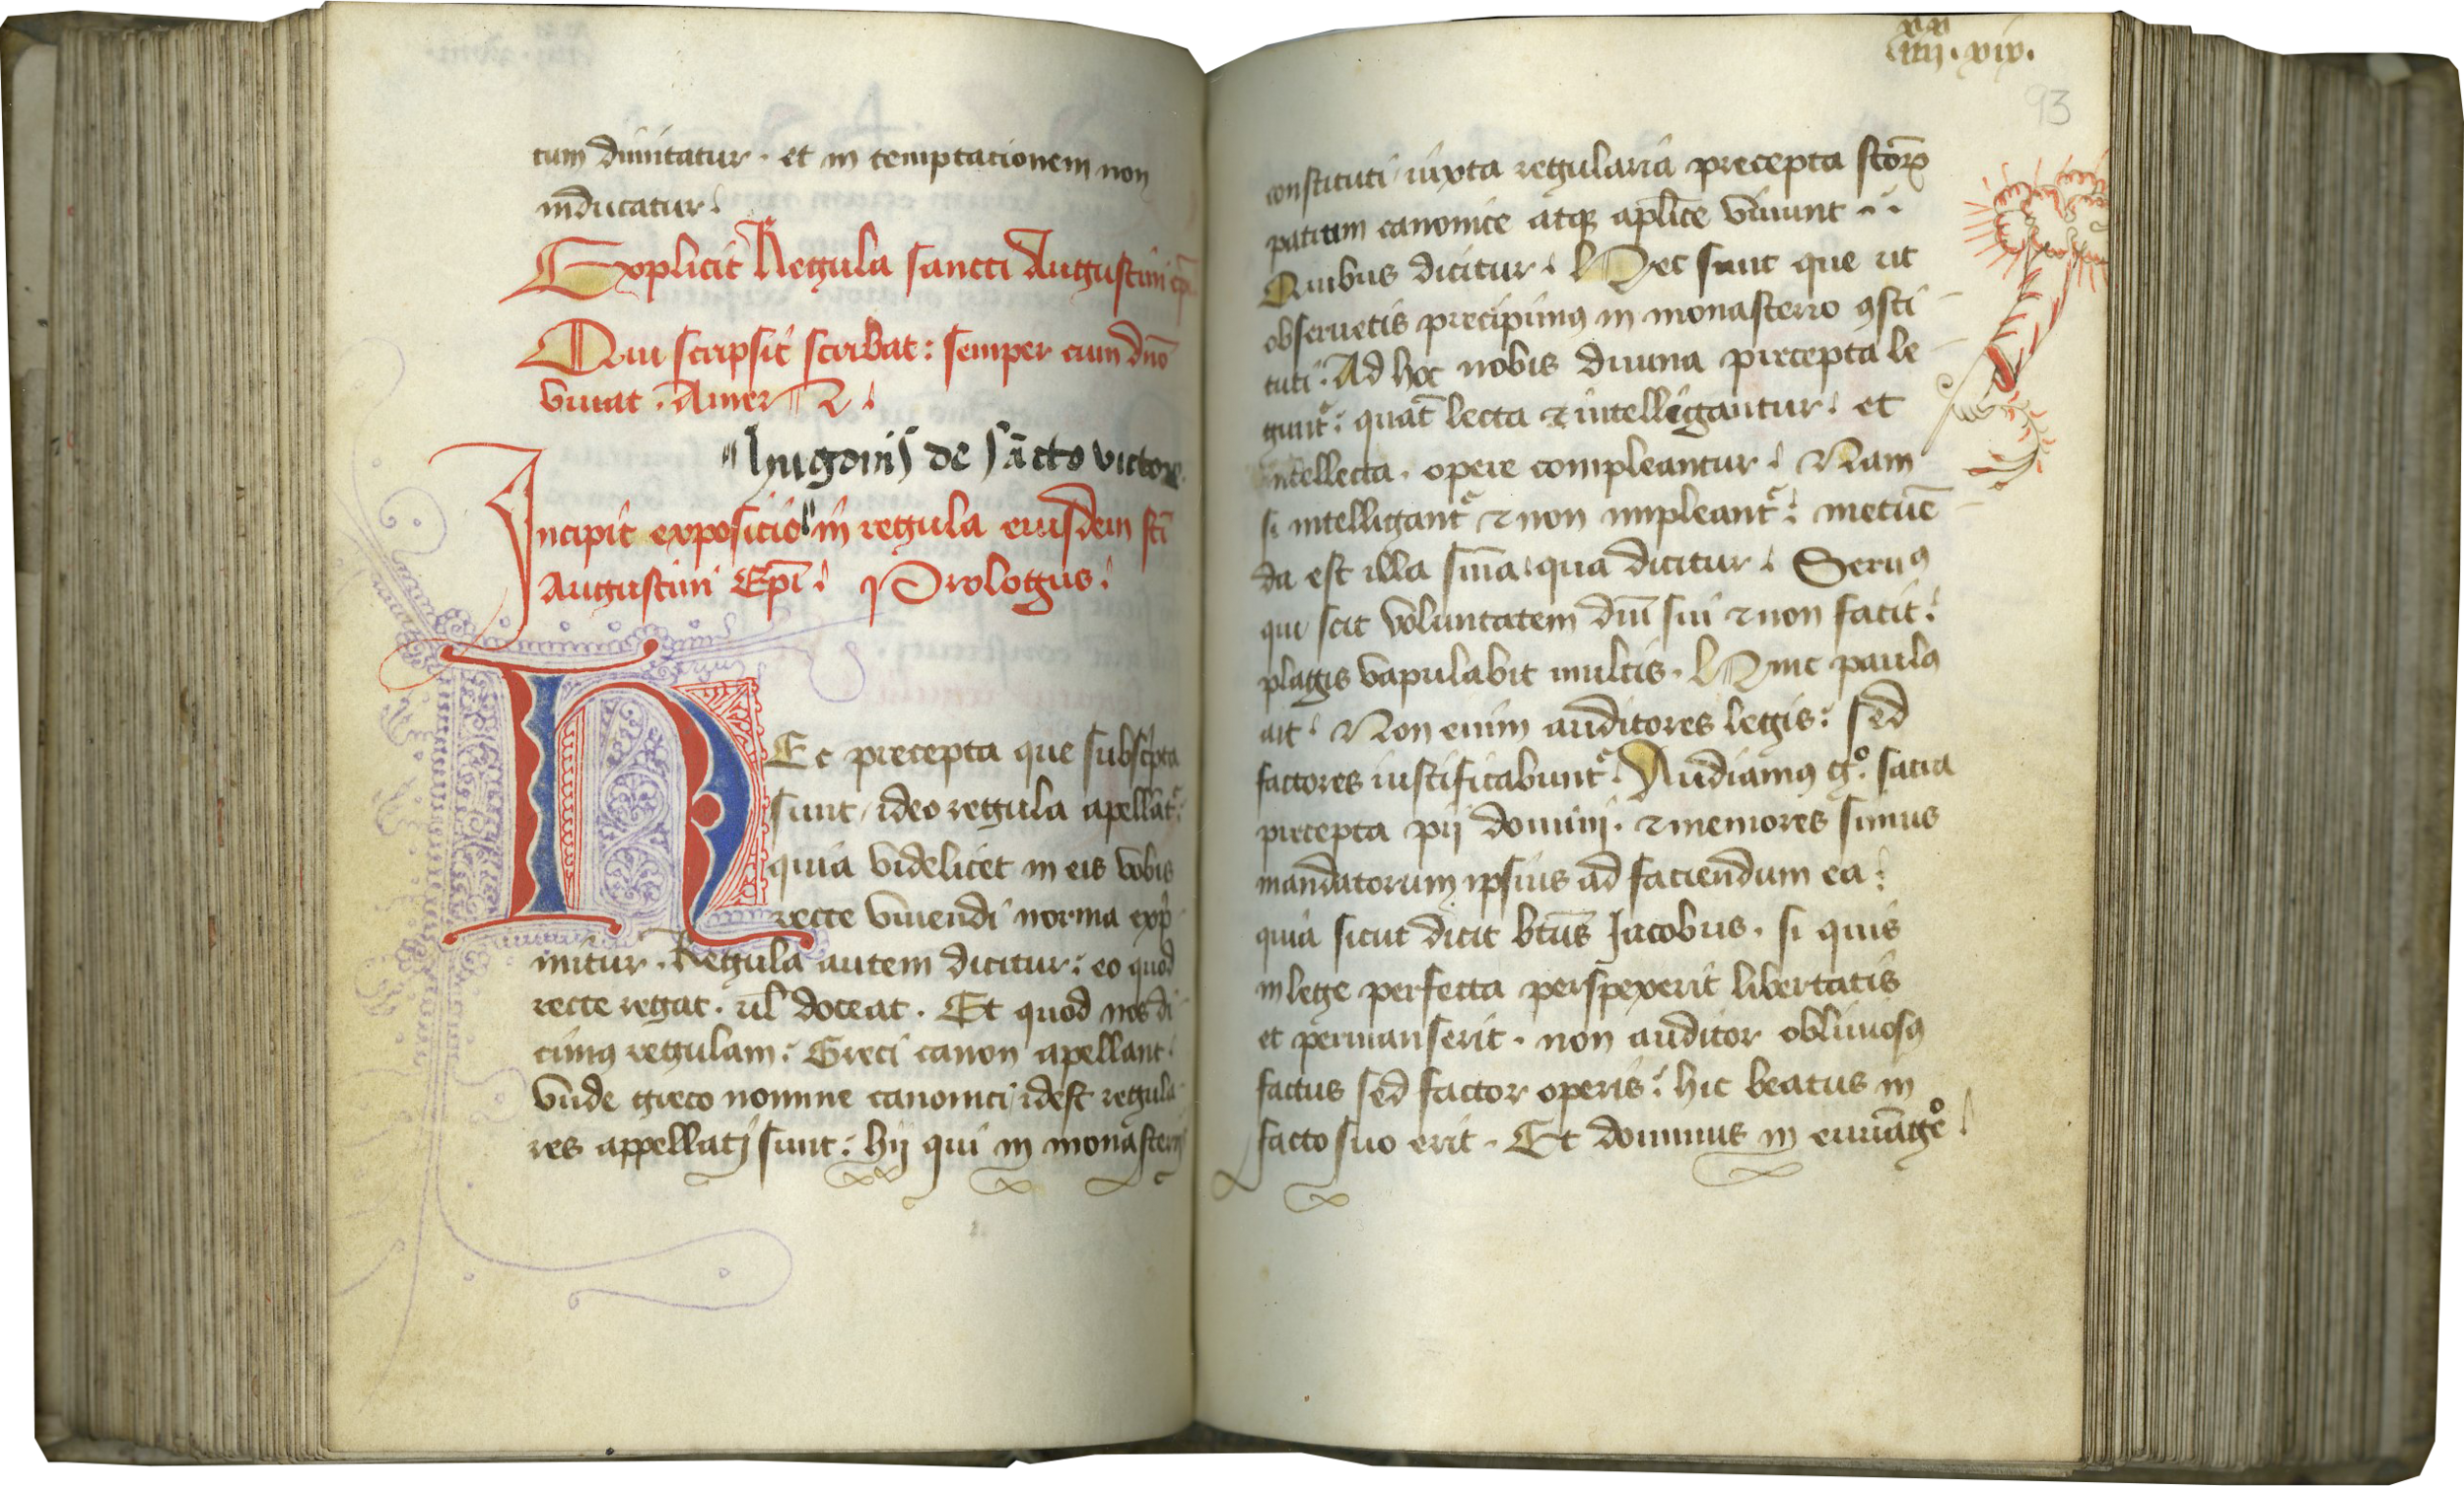 tum dimitatur · et in temptacionem non
inducatur ⸵
Explicit Regula sancti Augustini ep̄i
Qui scripsit scribat : semper cum dn̄o
viuat · Amen
" hugonis de sācto victore
Incipit exposicio " in regula eiusdem sc̄i
Augustini Ep̄i ⸵ Prologus ⸵
HEc precepta que subsc̓pta
sunt / ideo regula apellāt᷑ :
quia videlicet in eis vobis
recte viuendi norma exp̓
mitur · Regula autem dicitur : eo quod
recte regat · ul̄ doceat · Et quod nos di
cimꝰ regulam : Greci canon apellant ·
vnde greco nomine canonici / idest regula
res appellati sunt : hij qui in monasterijs
xx
iiij · xix ·
93
constituti / iuxta regularia precepta sc̄oꝝ
patrum canonice atqꝫ apl̄ice viuunt
Quibus dicitur ⸵ Hec sunt que ut
obseruetis precipimꝰ in monasterio ꝯsti
tuti · Ad hoc nobis diuina precepta le
gunt᷑ : quat̄ lecta ⁊ intelligantur ⸵ et
intellecta · opere compleantur ⸵ Nam
si intelligant᷑ ⁊ non impleant᷑ : metuē
da est illa sn̄ia · qua dicitur ⸵ Seruꝰ
qui scit voluntatem dn̄i sui ⁊ non facit :
plagis vapulabit multis · Hinc paulꝰ
ait ⸵ Non enim auditores legis : sed
factores iustificabunt᷑ · Audiamꝰ gͦ · sacra
precepta pij domini · ⁊ memores simus
mandatorum ipsius ad faciendum ea :
quia sicut dicit bt̄us Jacobus · si quis
in lege perfecta perspexerit libertatis
et permanserit · non auditor obliuiosꝰ
factus sed factor operis : hic beatus in
facto suo erit · Et dominus in euuāgeͦ ⸵